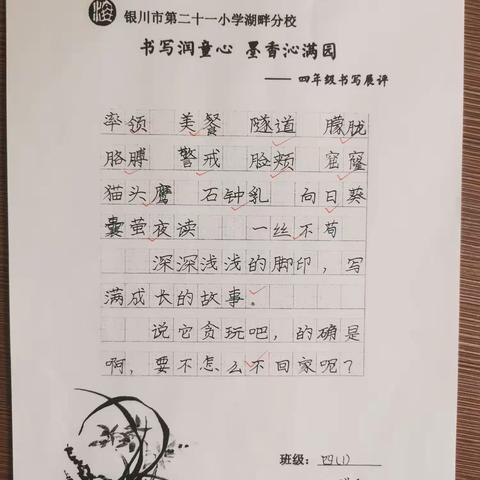 银川市第二十一小学湖畔分校
书写润童心 墨香沁满园
—— 四年级书写展评
率领 美餐 隧道 朦胧
胳膊 警戒 脸颊 窟窿
猫头鹰 石钟乳 向日葵
囊萤夜读 一丝不苟
深深浅浅的脚印，写
满成长的故事。
说它贪玩吧，的确是
啊，要不怎么不回家呢？
班级：四(1)